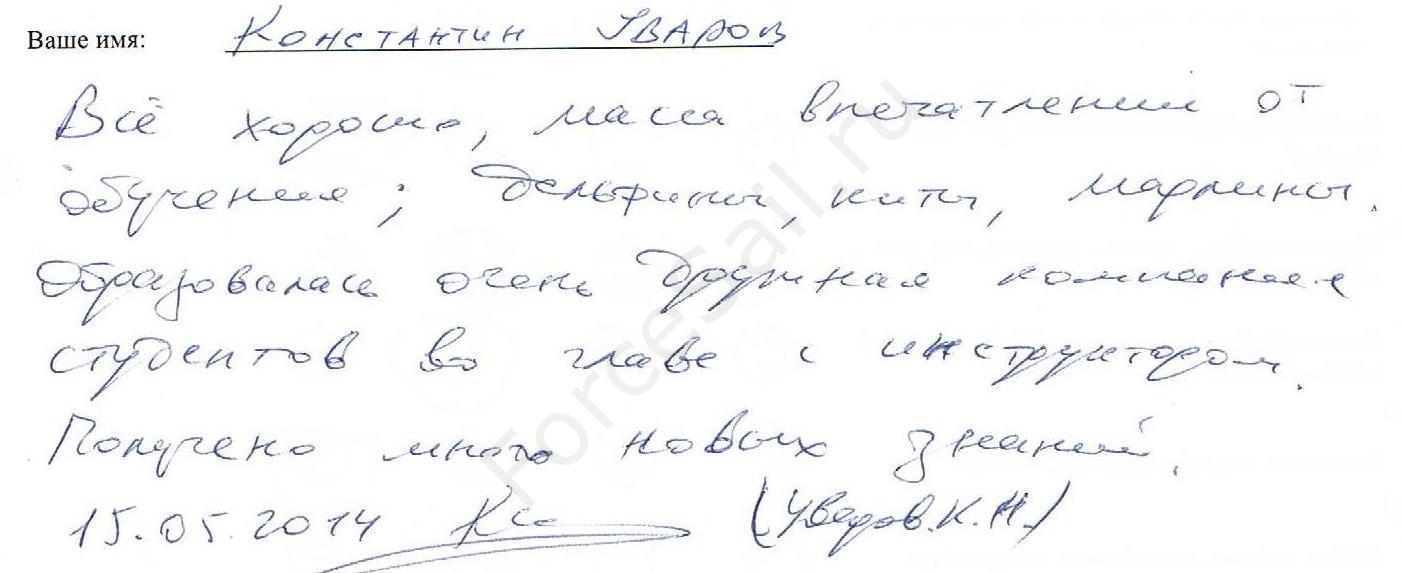 Ваше имя: Константин Уваров
Всё хорошо, масса впечатлений от
обучения; дельфины, киты, марлины.
Образовалась очень дружная компания
студентов во главе с инструктором.
Получено много новых знаний.
15.05.2014 (Уваров К.Н.)
ForceSail.ru